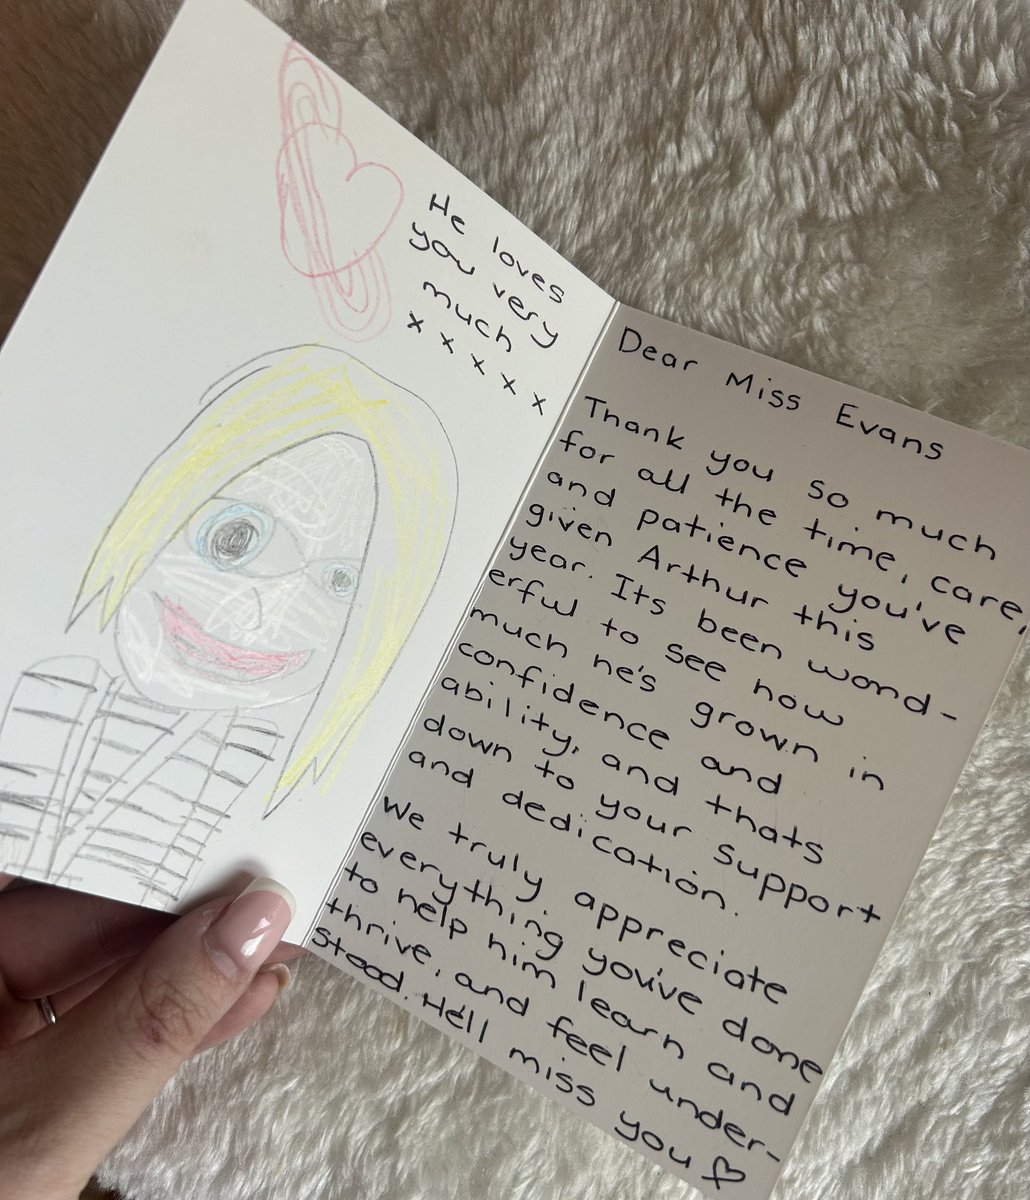 He loves
you very
much
x x x x x
Dear Miss Evans
Thank you so much
for all the time, care,
and patience you've
given Arthur this
year. Its been wond-
erful to see how
much he's grown in
confidence and
ability, and thats
down to your support
and dedication.
We truly appreciate
everything you've done
to help him learn and
thrive, and feel under-
stood. He'll miss you ♡